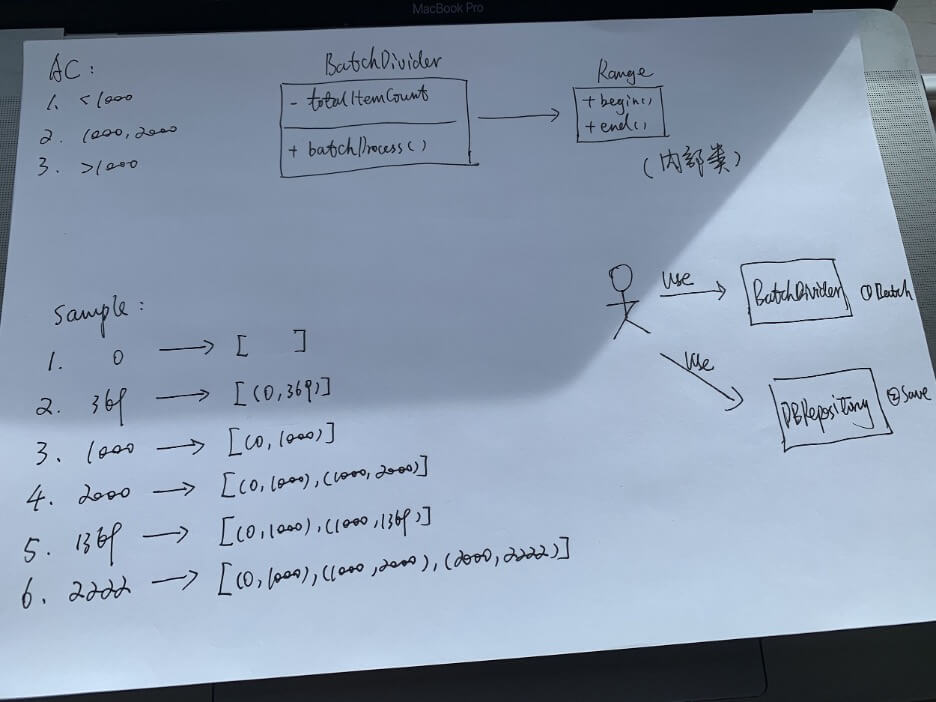 MacBook Pro
AC:
1. <1000
2. 1000, 2000
3. >1000
BatchDivider
- totalItemCount
+ batchProcess()
Range
+ begin()
+ end()
(内部类)
Sample:
1. 0 → [ ]
2. 369 → [(0,369)]
3. 1000 → [(0,1000)]
4. 2000 → [(0,1000),(1000,2000)]
5. 1369 → [(0,1000),(1000,1369)]
6. 2222 → [(0,1000),(1000,2000),(2000,2222)]
use
BatchDivider ①Batch
use
DBRepository ②Save